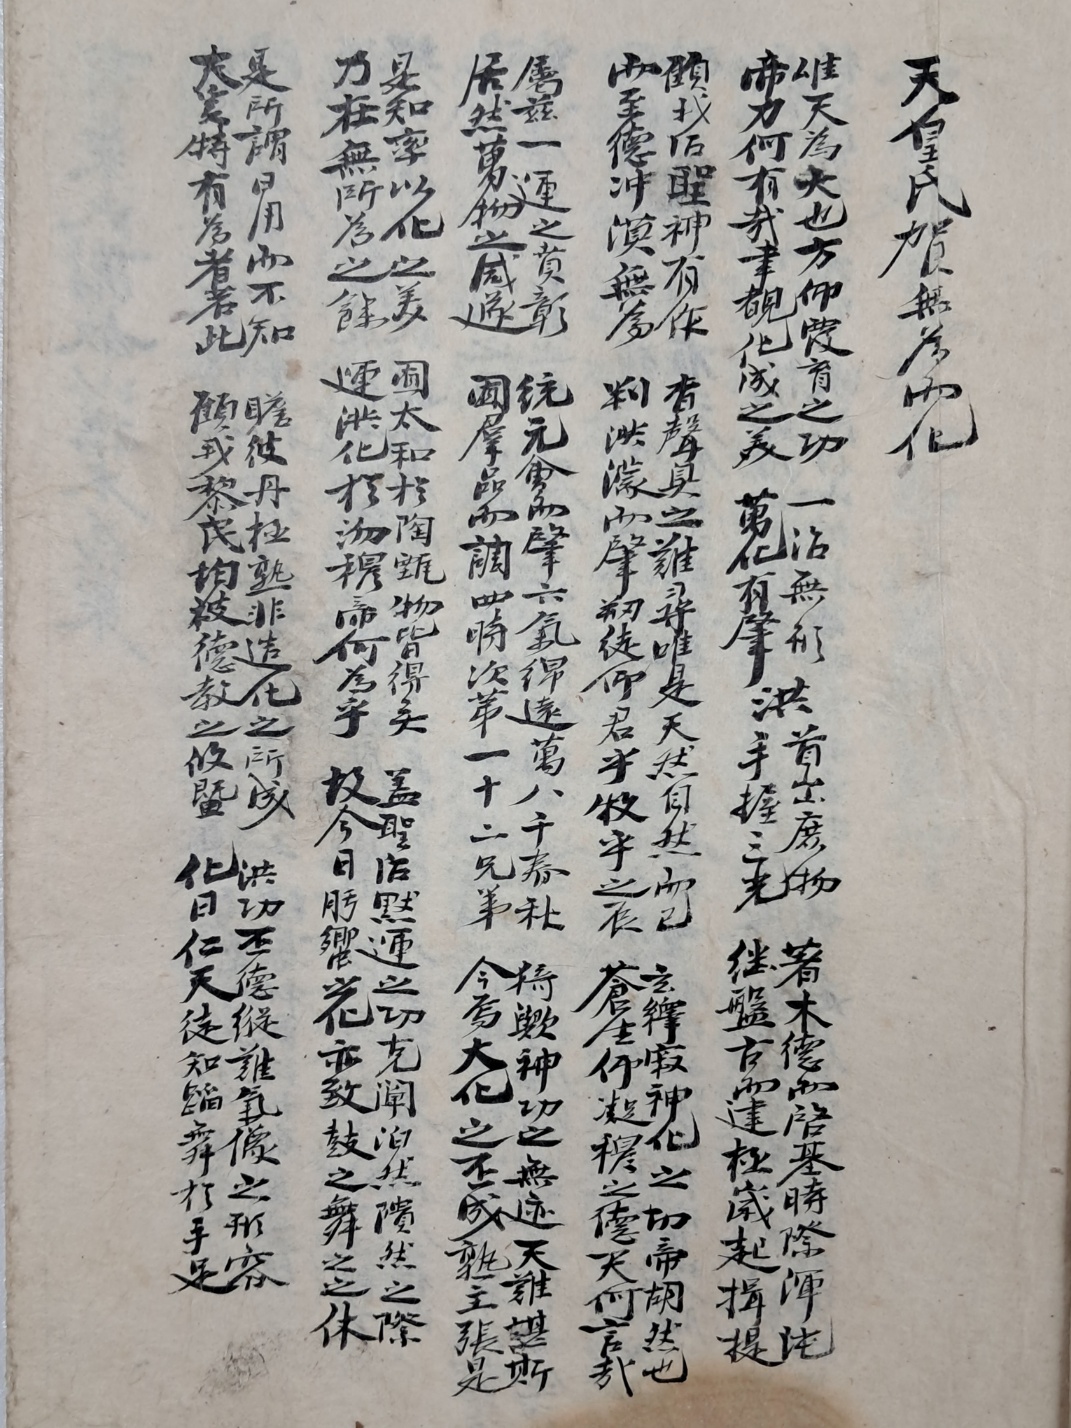 天皇氏賀無為而化
唯天為大也方仰覆育之功
帝力何有哉聿覩化成之美
一治無形
萬化有肇
洪
首出庶物
手握三光
著木德而啓基時際渾沌
繼盤古而建極歲起揖提
顧我后聖神有作
而至德冲漠無為
杳聲臭之難尋唯是天然自然而已
判洪濛而肇刱徒仰君乎牧乎之辰
玄繹寂神化之切帝胡然也
蒼生仰凝穆之德天何言哉
屬玆一運之賁彰
居然萬物之咸遂
統元會而肇六氣綿遠萬八千春秋
囿羣品而調四時次第一十二兄弟
猗歟神功之無迹天難諶斯
今焉大化之丕成孰主張是
是知率以化之美
乃在無所為之餘
囿太和於陶甄物皆得矣
運洪化於沕穆帝何為乎
盖聖治默運之功克闡泊然隤然之際
故今日肹蠁之化亦致鼓之舞之之休
是所謂日用而不知
夫豈特有為者若此
瞻彼丹極孰非造化之所成
顧我黎民均被德教之攸曁
洪功丕德縱難氣像之形容
化日仁天徒知蹈舞於手足